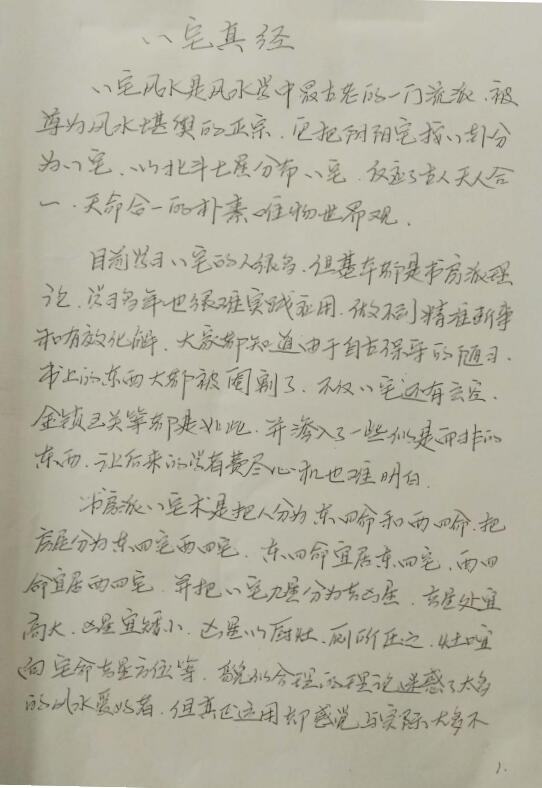 八宅真经
八宅风水是风水学中最古老的一门流派、被
尊为风水堪舆的正宗、它把阴阳宅按八卦分
为八宅、以北斗七星分布八宅、反应了古人天人合
一、天命合一的朴素唯物世界观、
目前学习八宅的人很多、但基本都是书房派理
论、学习多年也很难实践应用、做不到精准断事
和有效化解、大家都知道由于自古保守的陋习、
书上的东西大都被阉割了、不仅八宅还有玄空、
金锁玉关等都是如此、并渗入了一些似是而非的
东西、让后来的学者费尽心机也难明白、
书房派八宅术是把人分为东四命和西四命、把
房屋分为东四宅西四宅、东四命宜居东四宅、西四
命宜居西四宅、并把八宅九星分为吉凶星、吉星处宜
高大、凶星宜矮小、凶星以厨灶、厕所压之、灶口宜
向宅命吉星方位等、貌似合理的理论迷惑了太多
的风水爱好者、但真正运用却感觉与实际大多不
1.